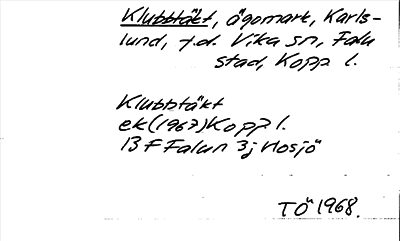 Klubbtäkt, ägomark, Karls-
lund, f.d. Vika sn, Falu
stad, Kopp l.
Klubbtäkt
ek(1967)Kopp l.
13 F Falun 3j Hosjö
TÖ 1968.